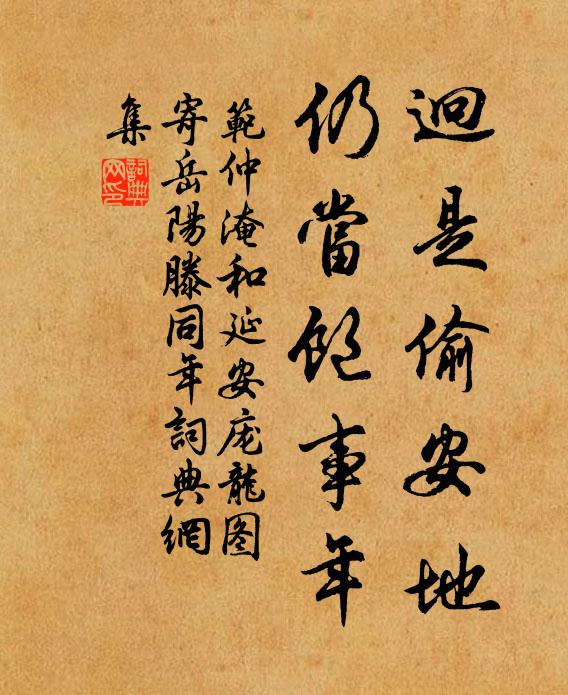 迥是偷安地
仍當飽事年
範仲淹和延安庞龍图
寄岳陽滕同年詞典網
集
詞典
网印